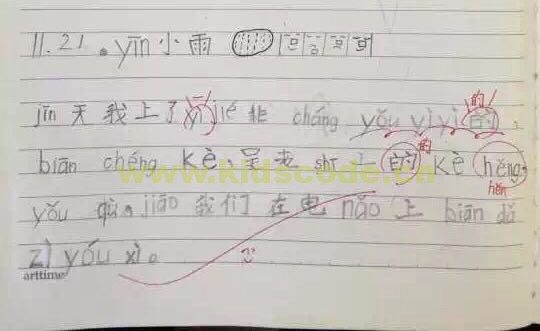 11.21 。yīn 小雨
的
jīn 天 我 上 了 yī jié 非 cháng yǒu yì yì 的 ,
biān chéng kè、呈 老 shī 上 的 的 kè hěng,
www.kidscode.cn
hěn
yǒu qù。jiāo 我们 在 电 nǎo 上 biān dǎ
zì yóu xì。
arttime